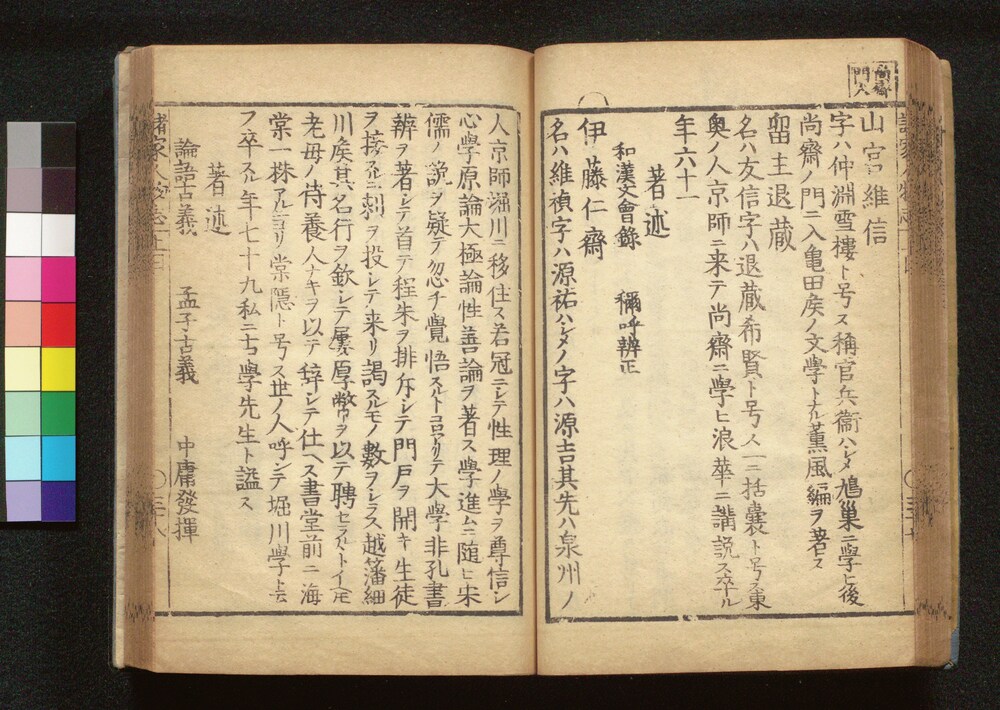 尚齋
門人
山宮維信
字ハ仲淵雪樓ト号ス稱官兵衞ハシメ鳩巣ニ學ヒ後
尚齋ノ門ニ入亀田矦ノ文學トナル薫風編ヲ著ス
留主退藏
名ハ友信字ハ退藏希賢ト号ス一ニ括囊ト号ス東
奥ノ人京師ニ来テ尚齋ニ學ヒ浪華ニ講説ス卒ル
年六十一
著述
和漢文會錄 稱呼辨正
伊藤仁齋
名ハ維禎字ハ源祐ハシメノ字ハ源吉其先ハ泉州ノ
人京師堀川ニ移住ス若冠ニシテ性理ノ學ヲ尊信シ
心學原論大極論性善論ヲ著ス學進ムニ随ヒ宋
儒ノ說ヲ疑テ忽チ覺悟スルトコロアリテ大學非孔書
辨ヲ著シテ首テ程朱ヲ排斥シテ門戸ヲ開キ生徒
ヲ接スルニ刺ヲ投シテ来リ謁スルモノ數ヲシラス越藩細
川矦其名行ヲ欽シテ屢厚幣ヲ以テ聘セラルトイヘ𪜈
老母ノ侍養人ナキヲ以テ辞シテ仕ヘス書堂前ニ海
棠一株アルニヨリ棠隱ト号ス世ノ人呼シテ堀川學ト云
フ卒スル年七十九私ニ古學先生ト謚ス
著述
論語古義 孟子古義 中庸發揮
諸家人物志